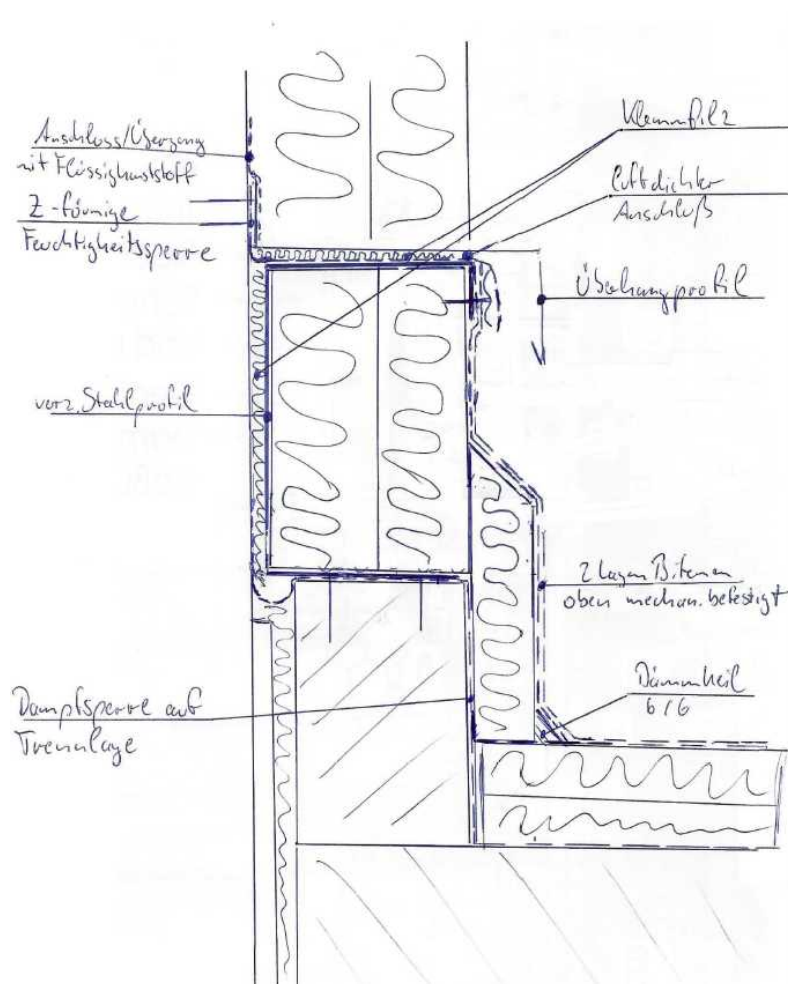 Anschluss/Übergang
mit Flüssigkunststoff
Z-förmige
Feuchtigkeitssperre
verz. Stahlprofil
Dampfsperre auf
Trennlage
Klemmfilz
luftdichter
Anschluß
Überhangprofil
2 Lagen Bitumen
oben mechan. befestigt
Dämmkeil
6/6